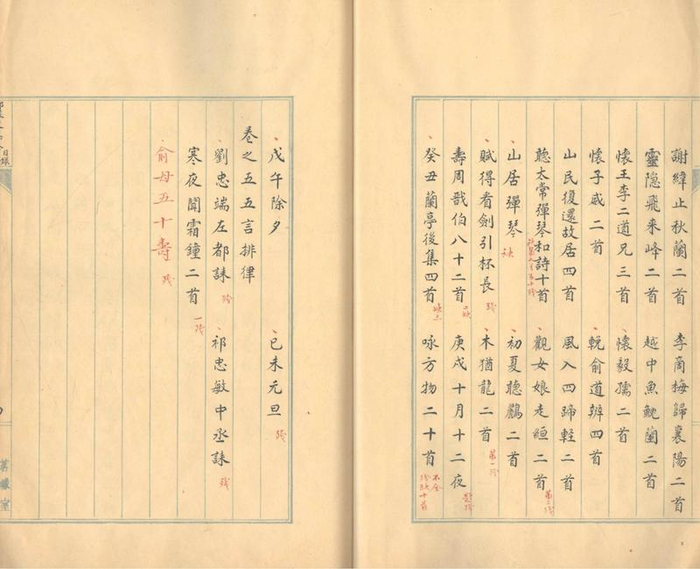 謝緯止秋蘭二首 李商梅歸襄陽二首
靈隐飛来峰二首 越中魚魫蘭二首
懷王李二道兄三首 懷毅孺二首
懷子威二首 輓俞道辨四首
山民復還故居四首 風入四蹄輕二首
聼太常彈琴和詩十首 觀女娘走絙二首 第二殘
山居彈琴 缺 初夏聽鸝二首
賦得看劍引杯長 殘 木猶龍二首 第一殘
壽周戩伯八十二首 二缺 庚戌十月十二夜 殘
癸丑蘭亭後集四首 咏方物二十首 不全
戊午除夕 己未元旦 殘
卷之五五言排律
劉忠端左都誄 殘 祁忠敏中丞誄 殘
寒夜聞霜鐘二首 一殘
俞母五十壽 殘
目錄
室